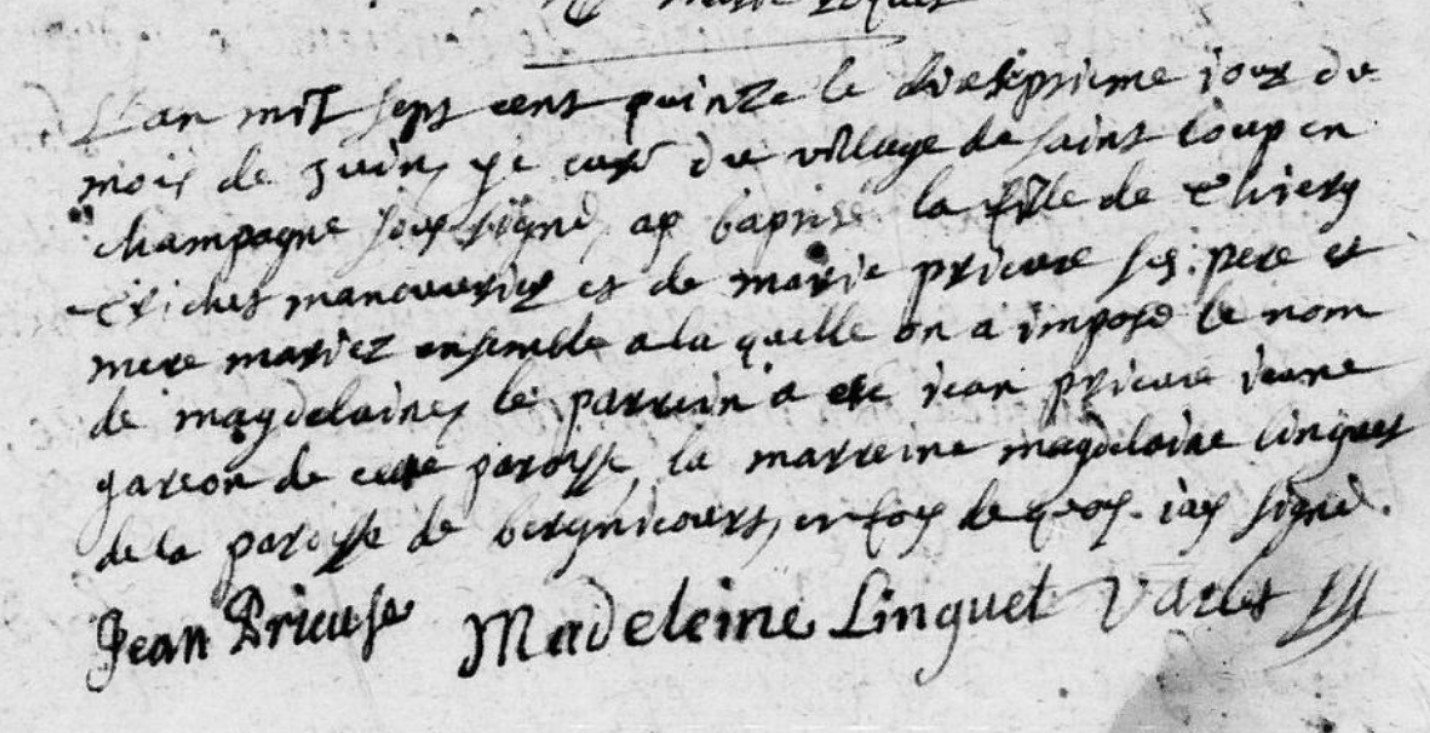 L'an mil sept cens quinze le dixseptieme jour du
mois de Juin, je curé du village de saint loup en
champagne soussigné, ay baptisé la fille de Thiery
Trichet manouvrier et de marie prieure ses pere et
mere mariez ensemble a la quelle on a imposé le nom
de magdelaine, le parrein a eté jean prieure jeune
garcon de cette paroysse, la marreine magdelaine linguet
de la paroysse de bergnicourt, en foy de quoy j'ay signé.
Jean Prieuse Madeleine Linguet Varlet